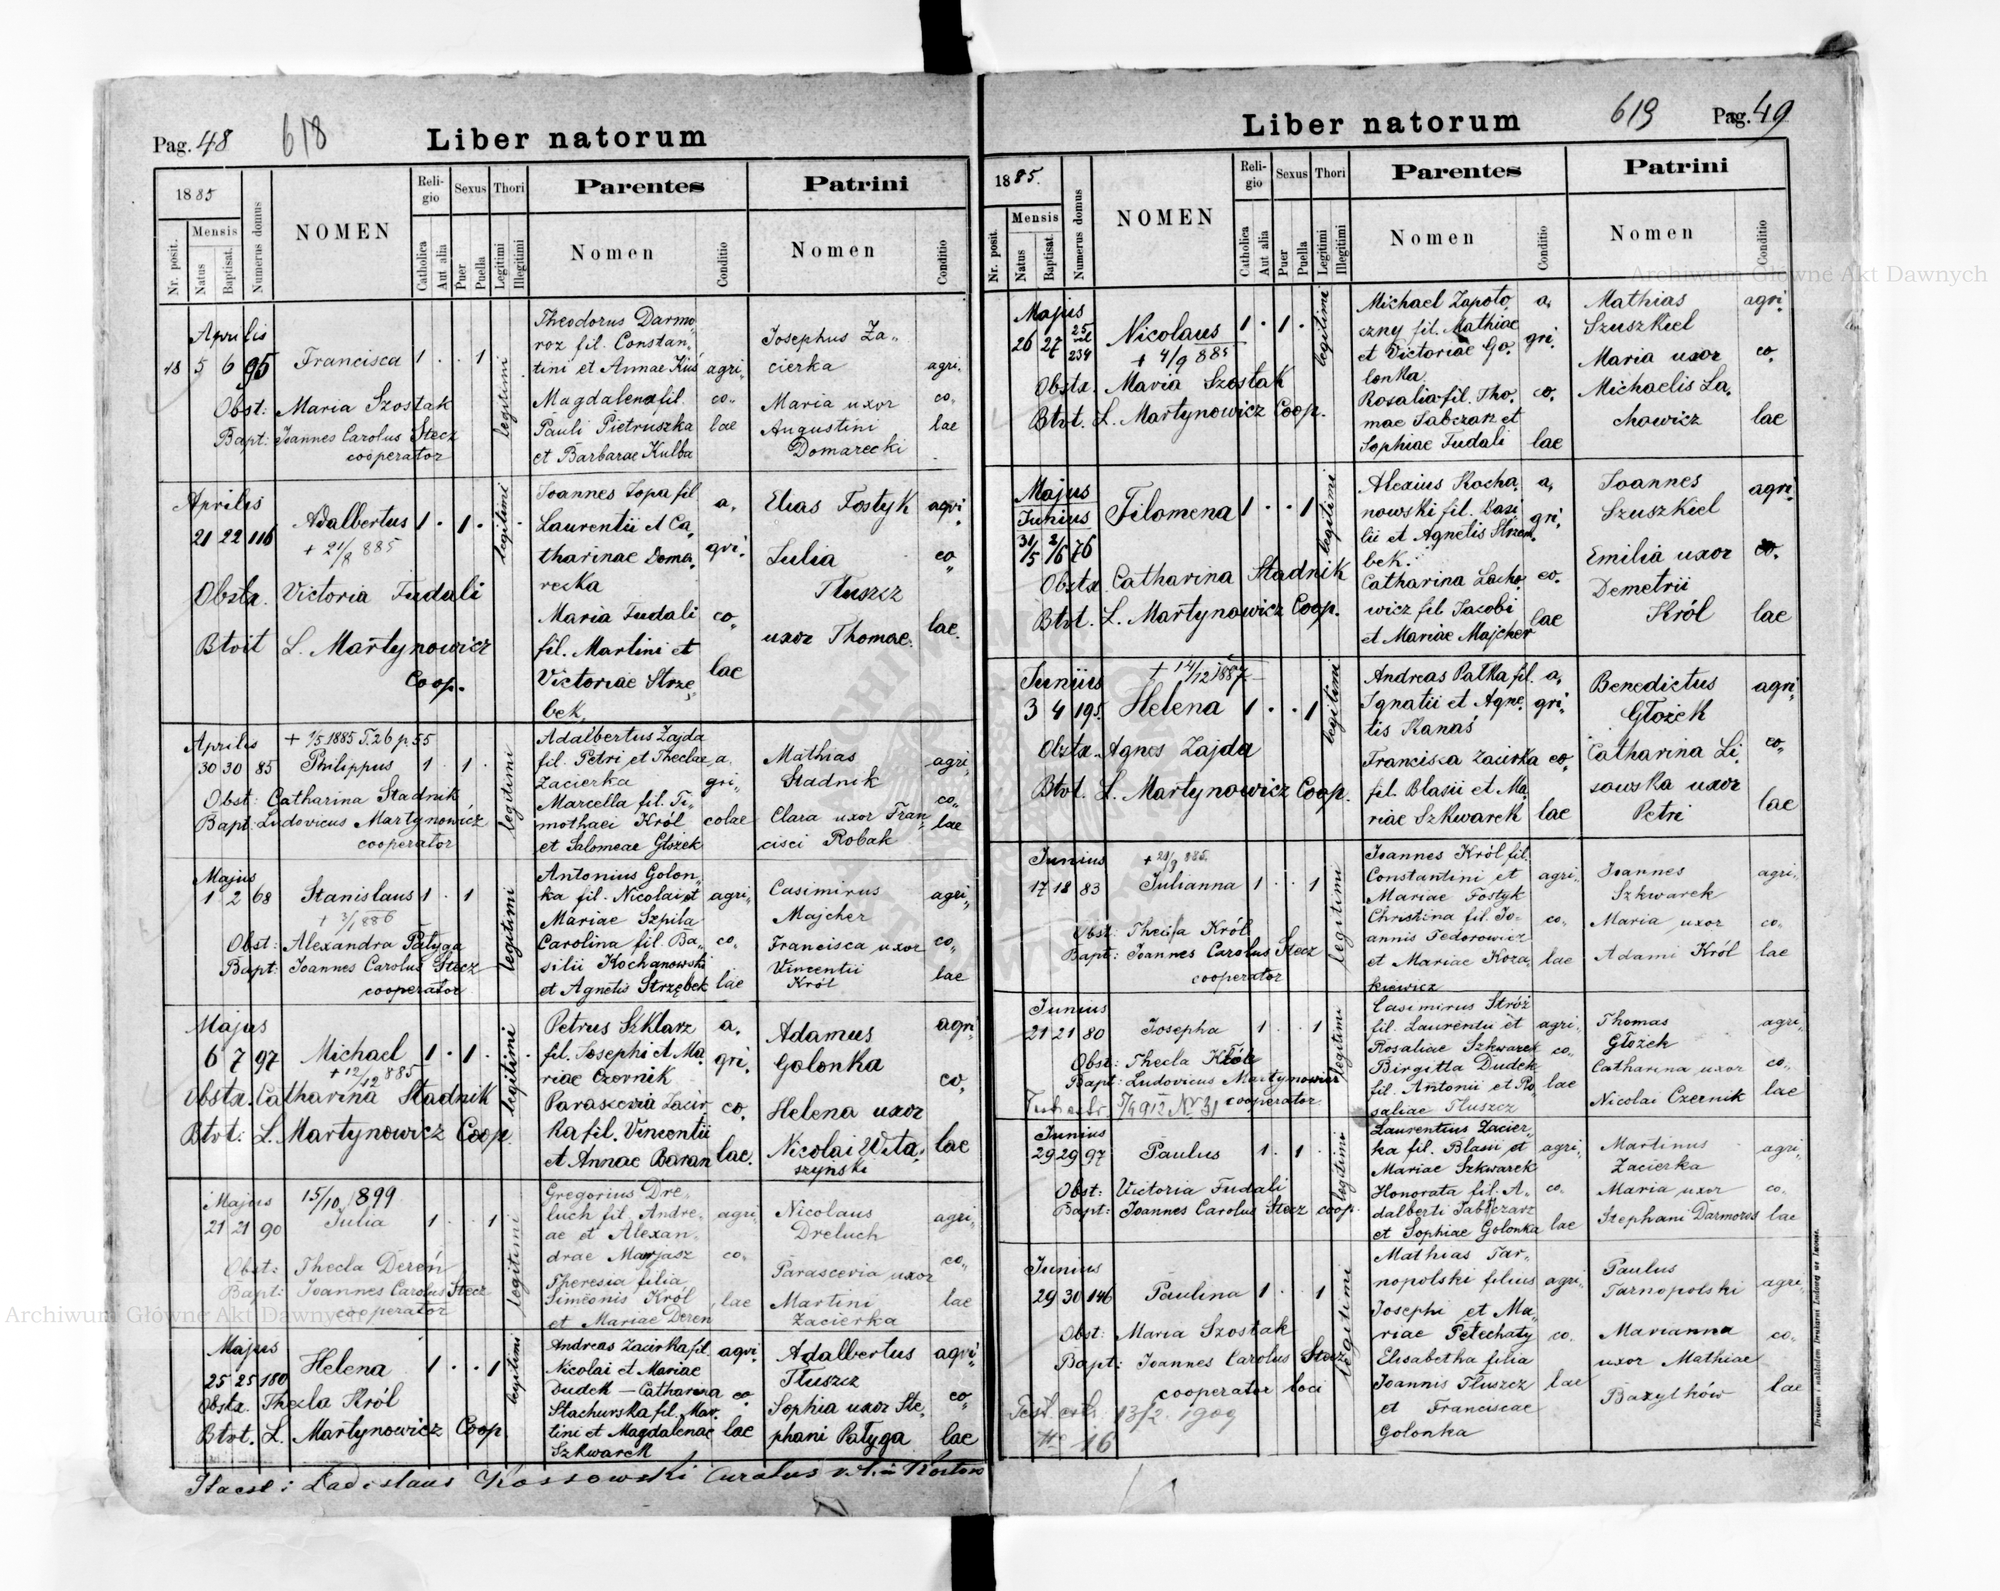 Pag. 48 618 Liber natorum
1885
Nr. posit.
Mensis
Natus
Baptisat.
Numerus domus
NOMEN
Religio
Catholica
Aut alia
Sexus
Puer
Puella
Thori
Legitimi
Illegitimi
Parentes
Nomen
Conditio
Patrini
Nomen
Conditio
Aprilis
18 5 6 95 Francisca 1 . . 1
Obst: Maria Szostak
Bapt: Joannes Carolus Stecz
cooperator
legitimi
Theodorus Darmo,
roz fil. Constan,
tini et Annae Kuś
Magdalena fil.
Pauli Pietruszka
et Barbarae Kulba
agri,
co,,
lae
Josephus Za,,
cierka
Maria uxor
Augustini
Domarecki
agri.
co,,
lae
Aprilis
21 22 116 Adalbertus 1 . 1 .
+ 21/8 885
Obstx. Victoria Fudali
Btvit L. Martynowicz
Coop.
legitimi
Joannes Sopa fil
Laurentii et Ca,
tharinae Doma,
recka
Maria Fudali
fil. Martini et
Victoriae Strzę,
bek,
a,
gri,
co,
lae
Elias Fostyk
Julia
Tłuszcz
uxor Thomae.
agri
co,,
lae.
Aprilis + 1/5 1885 T.26 p.55
30 30 85 Philippus 1 . 1 .
Obst: Catharina Stadnik
Bapt: Ludovicus Martynowicz
cooperator
legitimi
Adalbertus Zajda
fil. Petri et Theclae
Zacierka
Marcella fil. Ti,
mothaei Król
et Salomeae Głożek
a.
gri,
colae
Mathias
Stadnik
Clara uxor Fran,
cisci Robak
agri,
co,,
lae
Majus
1 2 68 Stanislaus 1 . 1
+ 3/1 886
Obst: Alexandra Patyga
Bapt: Joannes Carolus Stecz
cooperator
legitimi
Antonius Golon,,
ka fil. Nicolai et
Mariae Szpila
Carolina fil. Ba,,
silii Kochanowski
et Agnetis Strzębek
agri,
co,,
lae
Casimirus
Majcher
Francisca uxor
Vincentii
Król
agri,
co,,
lae
Majus
6 7 97 Michael 1 . 1 .
+ 12/12 885
Obstx. Catharina Stadnik
Btvt: L. Martynowicz Coop.
legitimi
Petrus Szklarz
fil. Josephi et Ma,
riae Czernik
Parascevia Zacir,
ka fil. Vincentii
et Annae Baran
a.
gri,
co,
lae.
Adamus
Golonka
Helena uxor
Nicolai Wita,
szyński
agri
co,
lae
Majus 15/10 1899
21 21 90 Julia 1 . . 1
Obst: Thecla Dereń
Bapt: Joannes Carolus Stecz
cooperator
legitimi
Gregorius Dre,
luch fil. Andre,
ae et Alexan,
drae Marjasz
Theresia filia
Simeonis Król
et Mariae Deren
agri,
co,,
lae
Nicolaus
Dreluch
Parascevia uxor
Martini
Zacierka
agri,
co,,
lae
Majus
25 25 180 Helena 1 . . 1
Obstx. Thecla Król
Btvt. L. Martynowicz Coop.
legitimi
Andreas Zacirka fil.
Nicolai et Mariae
Dudek — Catharina
Stachurska fil. Mar,
tini et Magdalenae
Szkwarek
agri,
co
lae
Adalbertus
Tłuszcz
Sophia uxor Ste,
phani Patyga
agri,
co,
lae
Ladislaus Kossowski Carolus
Liber natorum 619 Pag. 49
1885.
Nr. posit.
Mensis
Natus
Baptisat.
Numerus domus
NOMEN
Religio
Catholica
Aut alia
Sexus
Puer
Puella
Thori
Legitimi
Illegitimi
Parentes
Nomen
Conditio
Patrini
Nomen
Conditio
Majus
26 27 25 vel 234 Nicolaus 1 . 1 .
+ 4/9 885
Obstx. Maria Szostak
Btvt. L. Martynowicz Coop.
legitimi
Michael Zapoto,
czny fil. Mathiae
et Victoriae Go,
lonka.
Rosalia fil. Tho,
mae Jabczarz et
Sophiae Fudali
a,
gri,
co,
lae
Mathias
Szuszkiel
Maria uxor
Michaelis La,
chowicz
agri,
co,
lae
Majus
Junius
31/5 2/6 76 Filomena 1 . . 1
Obstx. Catharina Stadnik
Btvt. L. Martynowicz Coop.
legitimi
Alexius Kocha,
nowski fil. Basi
lii et Agnetis Strzem
bek.
Catharina Lacho,
wicz fil Jacobi
et Mariae Majcher
a,
gri,
co,
lae
Joannes
Szuszkiel
Emilia uxor
Demetrii
Król
agri,
co,
lae
Junius + 14/12 1887
3 4 195 Helena 1 . . 1
Obstx. Agnes Zajda
Btvt. L. Martynowicz Coop.
legitimi
Andreas Pałka fil.
Ignatii et Agne,
tis Kanaś
Francisca Zacirka
fil. Blasii et Ma,
riae Szkwarek
a,
gri,
co,
lae
Benedictus
Głożek
Catharina Li,
sowska uxor
Petri
agri,
co,
lae
Junius + 21/9 885.
17 18 83 Julianna 1 . . 1
Obst: Thecla Król
Bapt: Joannes Carolus Stecz
cooperator
legitimi
Joannes Król fil.
Constantini et
Mariae Fostyk
Christina fil. Jo,
annis Fedorowicz
et Mariae Koza,
kiewicz
agri,
co,,
lae
Joannes
Szkwarek
Maria uxor
Adami Król
agri,
co,,
lae
Junius
21 21 80 Josepha 1 . . 1
Obst: Thecla Król
Bapt: Ludovicus Martynowicz
cooperator
5/4 912 Nr 31
legitimi
Casimirus Stróż
fil. Laurentii et
Rosaliae Szkwarek
Birgitta Dudek
fil. Antonii et Ro,
saliae Tłuszcz
agri,
co,,
lae
Thomas
Głożek
Catharina uxor
Nicolai Czernik
agri,
co,,
lae
Junius
29 29 97 Paulus 1 . 1 .
Obst: Victoria Fudali
Bapt: Joannes Carolus Stecz coop.
legitimi
Laurentius Zacier,
ka fil. Blasii et
Mariae Szkwarek
Honorata fil. A,
dalberti Jabczarz
et Sophiae Golonka
agri,
co,
lae
Martinus
Zacierka
Maria uxor
Stephani Darmoros
agri,
co,
lae
Junius
29 30 146 Paulina 1 . . 1
Obst: Maria Szostak
Bapt: Joannes Carolus Stecz
cooperator loci
13/2 1909
No 16
legitimi
Mathias Tar,,
nopolski filius
Josephi et Ma,
riae Petechaty
Elisabetha filia
Joannis Tłuszcz
et Franciscae
Golonka
agri,
co.
lae
Paulus
Tarnopolski
Marianna
uxor Mathiae
Bazylków
agri,
co,,
lae
Drukiem i nakładem Drukarni Ludowej we Lwowie.
Archiwum Główne Akt Dawnych
Archiwum Główne Akt Dawnych